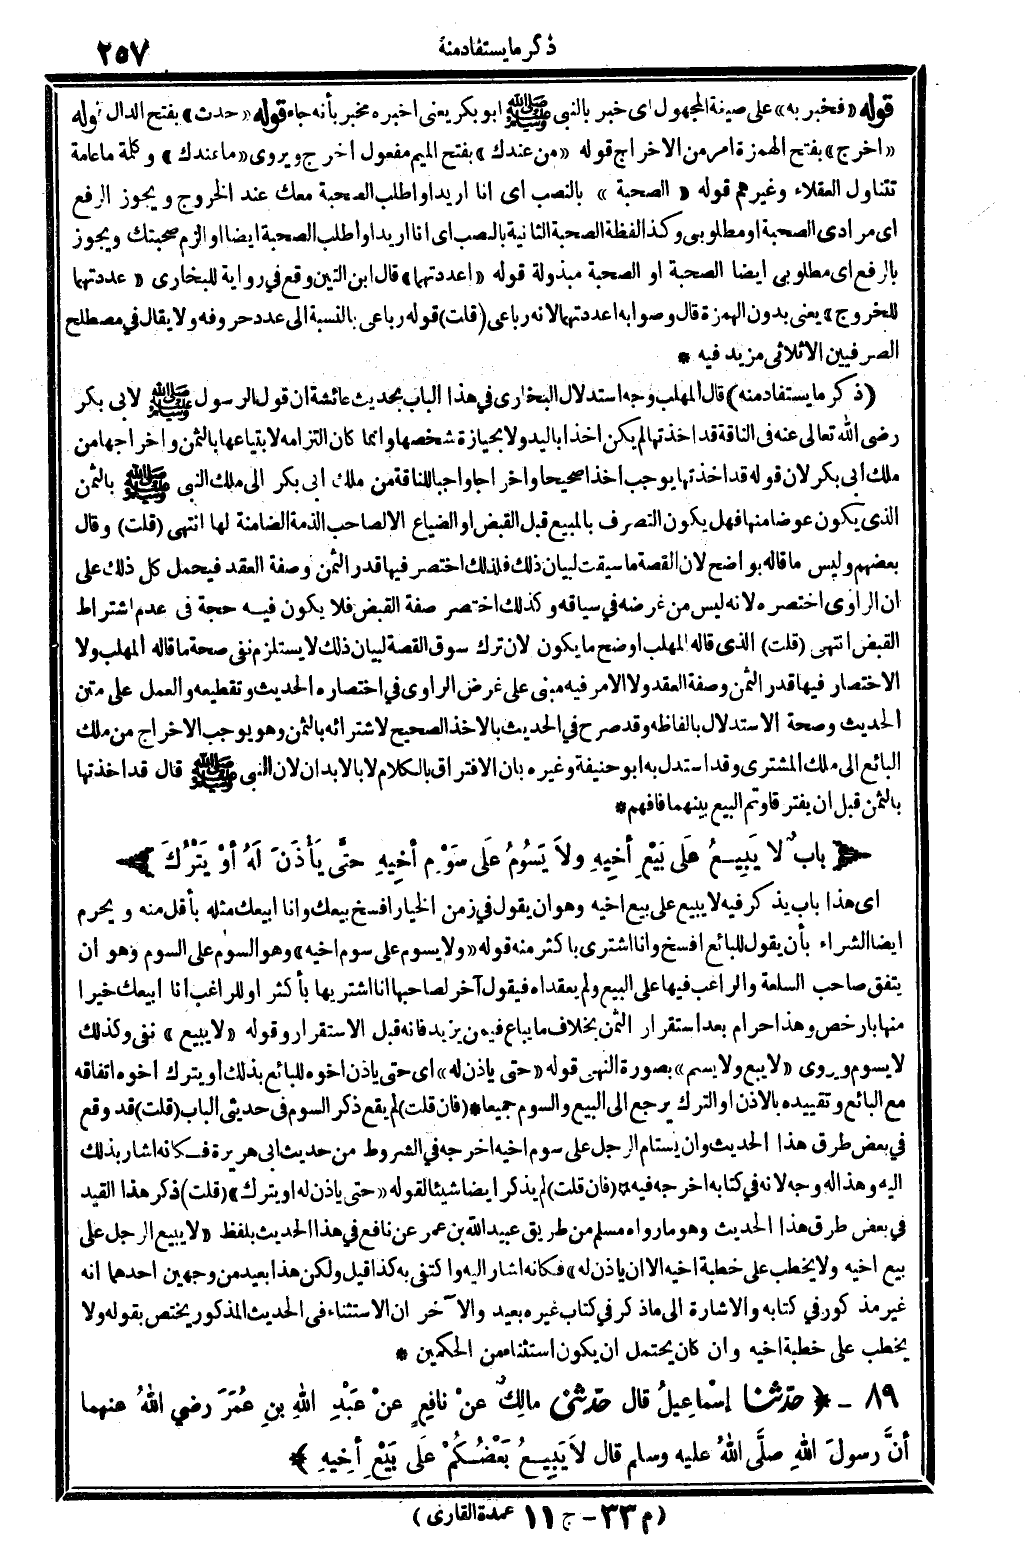 ذكر ما يستفاد منه
٢٥٧
قوله «فخبر به» على صيغة المجهول اى خبر بالنبى ﷺ ابو بكر يعنى اخبره مخبر بأنه جاء قوله «حدث» بفتح الدال قوله
«اخرج» بفتح الهمزة امر من الاخراج قوله «من عندك» بفتح الميم مفعول اخرج ويروى «ما عندك» وكلمة ما عامة
تتناول العقلاء وغيرهم قوله «الصحبة» بالنصب اى انا اريد او اطلب الصحبة معك عند الخروج ويجوز الرفع
اى مرادى الصحبة او مطلوبى وكذا لفظة الصحبة الثانية بالنصب اى انا اريد او اطلب الصحبة ايضا او الزم صحبتك ويجوز
بالرفع اى مطلوبى ايضا الصحبة او الصحبة مبذولة قوله «اعددتهما» قال ابن التين وقع في رواية للبخارى «عددتهما
للخروج» يعنى بدون الهمزة قال وصوابه اعددتهما لانه رباعى (قلت) قوله رباعى بالنسبة الى عدد حروفه ولا يقال في مصطلح
الصرفيين الا ثلاثى مزيد فيه *
(ذكر ما يستفاد منه) قال المهلب وجه استدلال البخارى في هذا الباب بحديث عائشة ان قول الرسول ﷺ لابى بكر
رضى الله تعالى عنه فى الناقة قد اخذتها لم يكن اخذا باليد ولا بحيازة شخصها وانما كان التزامه لابتياعها بالثمن واخراجها من
ملك ابى بكر لان قوله قد اخذتها يوجب اخذا صحيحا واخراجا واجبا للناقة من ملك ابى بكر الى ملك النبى ﷺ بالثمن
الذى يكون عوضا منها فهل يكون التصرف بالمبيع قبل القبض او الضياع الا لصاحب الذمة الضامنة لها انتهى (قلت) وقال
بعضهم وليس ما قاله بواضح لان القصة ما سيقت لبيان ذلك فلذلك اختصر فيها قدر الثمن وصفة العقد فيحمل كل ذلك على
ان الراوى اختصره لانه ليس من غرضه في سياقه وكذلك اختصر صفة القبض فلا يكون فيه حجة فى عدم اشتراط
القبض انتهى (قلت) الذى قاله المهلب اوضح ما يكون لان ترك سوق القصة لبيان ذلك لا يستلزم نفى صحة ما قاله المهلب ولا
الاختصار فيها قدر الثمن وصفة العقد ولا الامر فيه مبنى على غرض الراوى في اختصاره الحديث وتقطيعه والعمل على متن
الحديث وصحة الاستدلال بالفاظه وقد صرح في الحديث بالاخذ الصحيح لاشترائه بالثمن وهو يوجب الاخراج من ملك
البائع الى ملك المشترى وقد استدل به ابو حنيفة وغيره بان الافتراق بالكلام لا بالابدان لان النبى ﷺ قال قد اخذتها
بالثمن قبل ان يفترقا وتم البيع بينهما فافهم *
﴿ بابٌ لا يَبِيعُ عَلَى بَيْعِ أخِيهِ ولاَ يَسُومُ عَلَى سَوْمِ أخِيهِ حتَّى يَأْذَنَ لَهُ أوْ يَتْرُكَ ﴾
اى هذا باب يذكر فيه لا يبيع على بيع اخيه وهو ان يقول في زمن الخيار افسخ بيعك وانا ابيعك مثله بأقل منه ويحرم
ايضا الشراء بأن يقول للبائع افسخ وانا اشترى باكثر منه قوله «ولا يسوم على سوم اخيه» وهو السوم على السوم وهو ان
يتفق صاحب السلعة والراغب فيها على البيع ولم يعقداه فيقول آخر لصاحبها انا اشتريها بأكثر او للراغب انا ابيعك خيرا
منها بارخص وهذا حرام بعد استقرار الثمن بخلاف ما يباع فيمن يزيد فانه قبل الاستقرار وقوله «لا يبيع» نفى وكذلك
لا يسوم وروى «لا يبع ولا يسم» بصورة النهى قوله «حتى ياذن له» اى حتى ياذن اخوه للبائع بذلك او يترك اخوه اتفاقه
مع البائع وتقييده بالاذن او الترك يرجع الى البيع والسوم جميعا * (فان قلت) لم يقع ذكر السوم فى حديثى الباب (قلت) قد وقع
في بعض طرق هذا الحديث وان يستام الرجل على سوم اخيه اخرجه في الشروط من حديث ابى هريرة فكانه اشار بذلك
اليه وهذا له وجه لانه في كتابه اخرجه فيه * (فان قلت) لم يذكر ايضا شيئا لقوله «حتى ياذن له او يترك» (قلت) ذكر هذا القيد
في بعض طرق هذا الحديث وهو ما رواه مسلم من طريق عبيد الله بن عمر عن نافع في هذا الحديث بلفظ «لا يبيع الرجل على
بيع اخيه ولا يخطب على خطبة اخيه الا ان ياذن له» فكانه اشار اليه واكتفى به كذا قيل ولكن هذا بعيد من وجهين احدهما انه
غير مذكور في كتابه والاشارة الى ما ذكر في كتاب غيره بعيد والآخر ان الاستثناء فى الحديث المذكور يختص بقوله ولا
يخطب على خطبة اخيه وان كان يحتمل ان يكون استثناء من الحكمين *
٨٩ - ﴿ حدّثنا إسْماعِيلُ قال حدّثنى مالِكٌ عنْ نافِعٍ عنْ عَبْدِ اللهِ بنِ عُمَرَ رضي اللهُ عنهما
أنَّ رسولَ اللهِ صلَّى اللهُ عليه وسلم قال لاَ يَبِيعُ بَعْضُكُمْ عَلَى بَيْعِ أخِيهِ ﴾
(م ٣٣ - ج ١١ عمدة القارى)